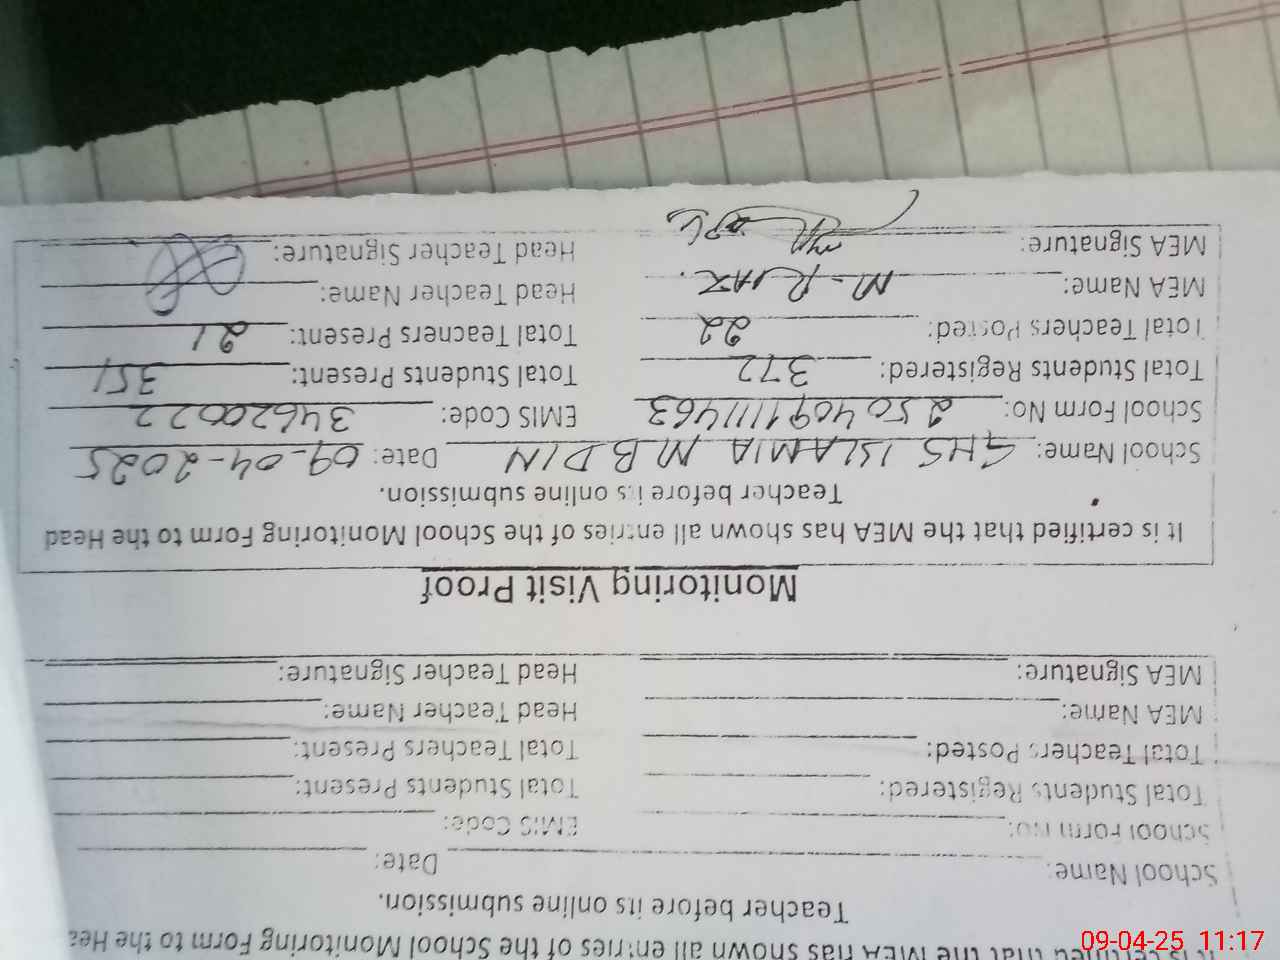 It is certified that the MEA has shown all entries of the School Monitoring Form to the Hea
Teacher before its online submission.
School Name: Date:
School Form No: EMIS Code:
Total Students Registered: Total Students Present:
Total Teachers Posted: Total Teachers Present:
MEA Name: Head Teacher Name:
MEA Signature: Head Teacher Signature:
Monitoring Visit Proof
It is certified that the MEA has shown all entries of the School Monitoring Form to the Head
Teacher before its online submission.
School Name: GHS ISLAMIA MBDIN Date: 09-04-2025
School Form No: 2504091111463 EMIS Code: 34620022
Total Students Registered: 372 Total Students Present: 351
Total Teachers Posted: 22 Total Teachers Present: 21
MEA Name: M-RIAZ. Head Teacher Name:
MEA Signature: Head Teacher Signature:
09-04-25 11:17